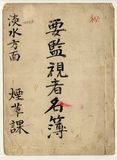 要監視者名簿
淡水方面
煙草課